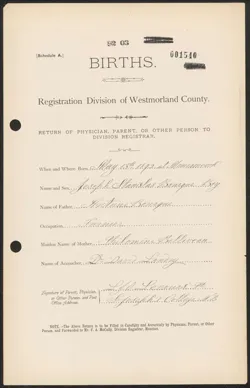 (Schedule A.)
001540
BIRTHS.
Registration Division of Westmorland County.
RETURN OF PHYSICIAN, PARENT, OR OTHER PERSON TO
DIVISION REGISTRAR.
When and Where Born, May 15th 1892 at
Name and Sex, Joseph Stanislas Bourque Boy
Name of Father, Bourque
Occupation, Farmer
Maiden Name of Mother,
Name of Accoucher, Dr. Landry
Signature of Parent, Physician,
or Other Person, and Post
Office Address.
St Joseph's College N.B.
NOTE.—The Above Return is to be Filled in Carefully and Accurately by Physician, Parent, or Other
Person, and Forwarded to Division Registrar, Moncton.